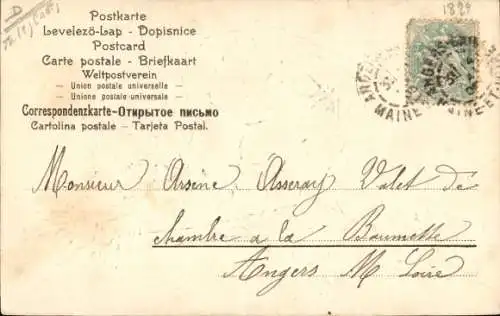 D
1899
Postkarte
Levelezö-Lap - Dopisnice
Postcard
Carte postale - Briefkaart
Weltpostverein
- Union postale universelle -
- Unione postale universale -
Correspondenzkarte-Открытое письмо
Cartolina postale - Tarjeta Postal.
MAINE
Monsieur Arsène Asseray Valet de
chambre a la Baumette
Angers M Loire